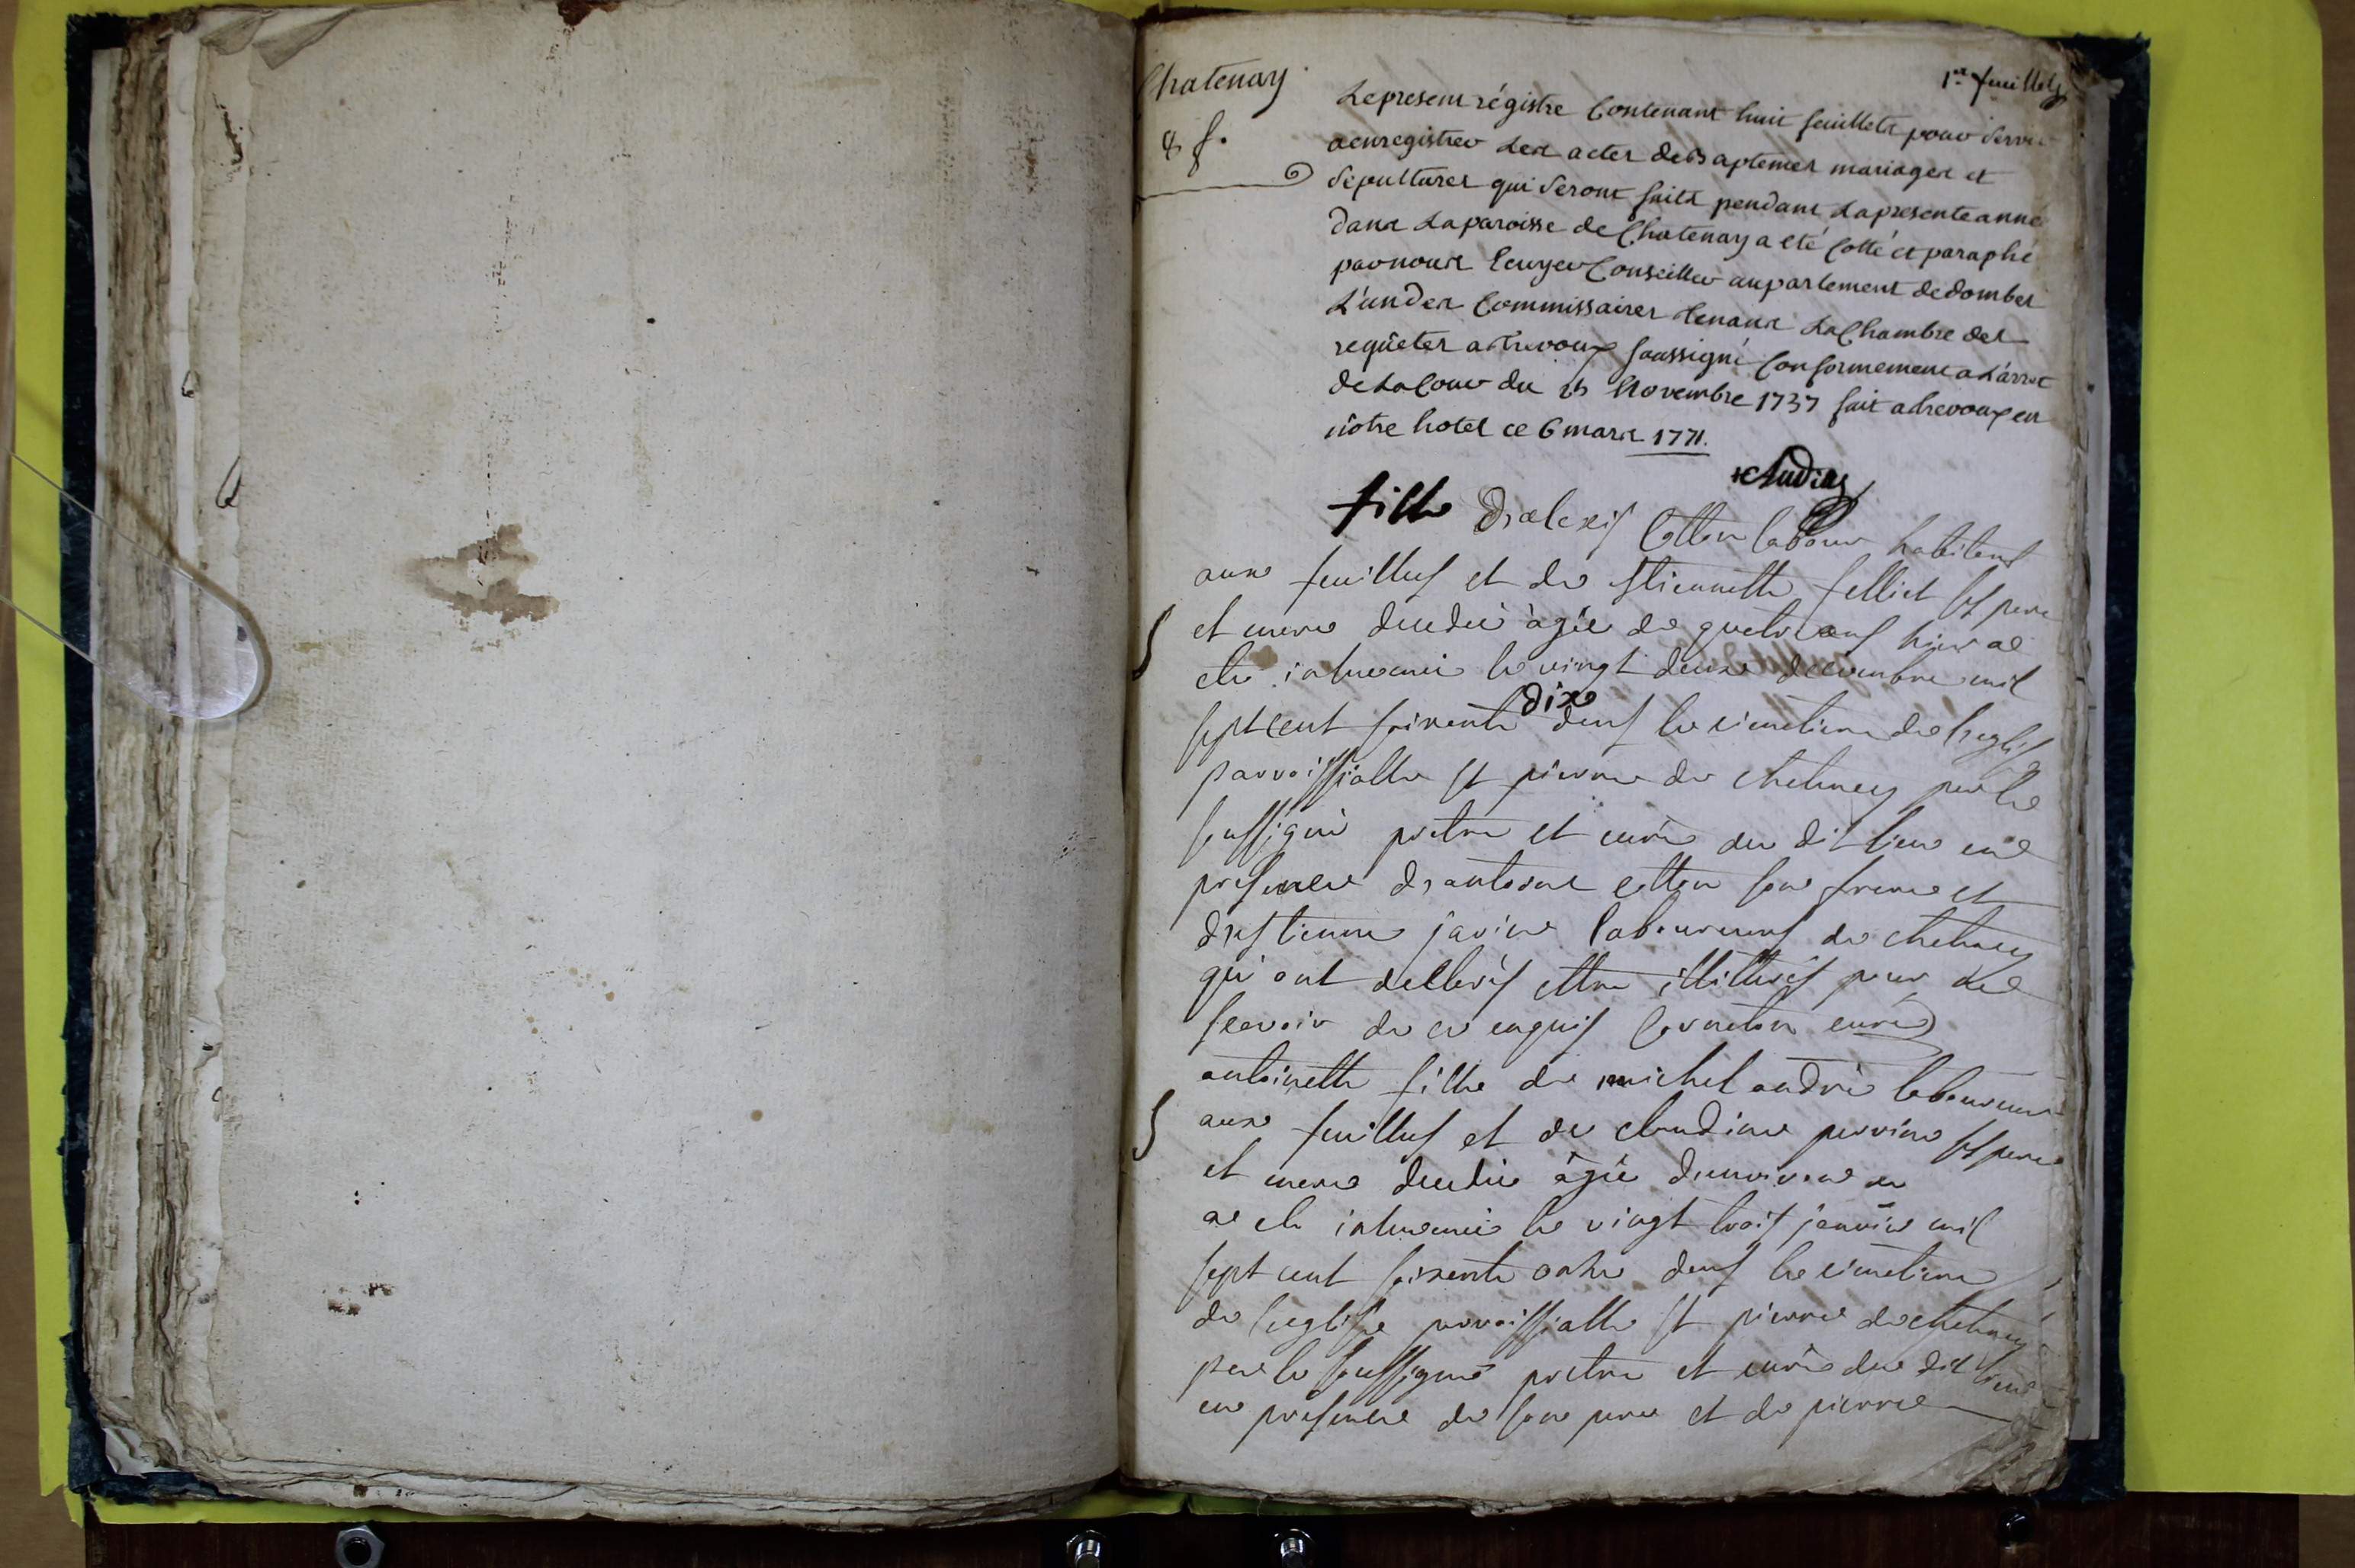 Chatenay
8 f.
1er feuillet
Le present régistre Contenant huit feuillets pour servir
a enregistrer Les actes de Baptemes mariages et
sépultures qui seront faits pendant La presente anné
dans La paroisse de Chatenay a eté Cotté et paraphé
par nous Ecuyer Conseiller au parlement de dombes
L'un des Commissaires tenant La Chambre des
requêtes a trevoux soussigné Conformement a L'arret
de La Cour du Novembre 1737 fait a trevoux en
nôtre hotel ce 6 mars 1771.
fille d'alexis Cotton labour habitant
aux feuillus et de étiennette felliet ses pere
et mere decedée àgée de quatre ans hier a
ete inhumée le vingt deux decembre mil
sept cent soixante dix dans le cimetiere de l'eglise
parroissialle st pierre de chatenay par le
soussigné pretre et curé du dit lieu en
presence d'antoine cotton son frere et
d'estienne janin laboureurs de chatenay
qui ont declarés ettre illitterés pour de
scavoir de ce enquis Corneton curé
antoinette fille de michel andré laboureur
aux feuillus et de claudine perrine ses pere
et mere decedée àgée d'environ
a ete inhumée le vingt trois janvier mil
sept cent soixante onze dans le cimetiere
de l'eglise parroissialle st pierre de chatenay
par le soussigné pretre et curé du dit lieu
en presence de son pere et de pierre